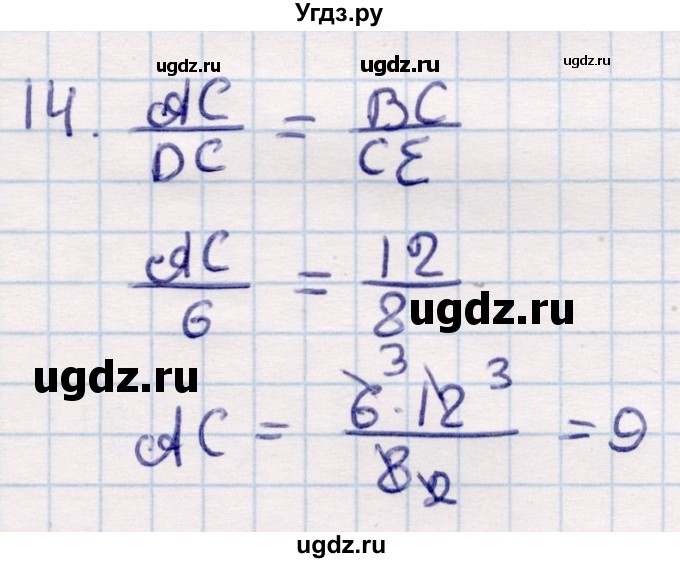 Угдз.ру
ugdz.ru ugdz.ru ugdz.ru
14. AC/DC = BC/CE
AC/6 = 12/8
ugdz.ru
ugdz.ru
AC = 6 3 · 12 3 / 8 2 = 9
ugdz.ru